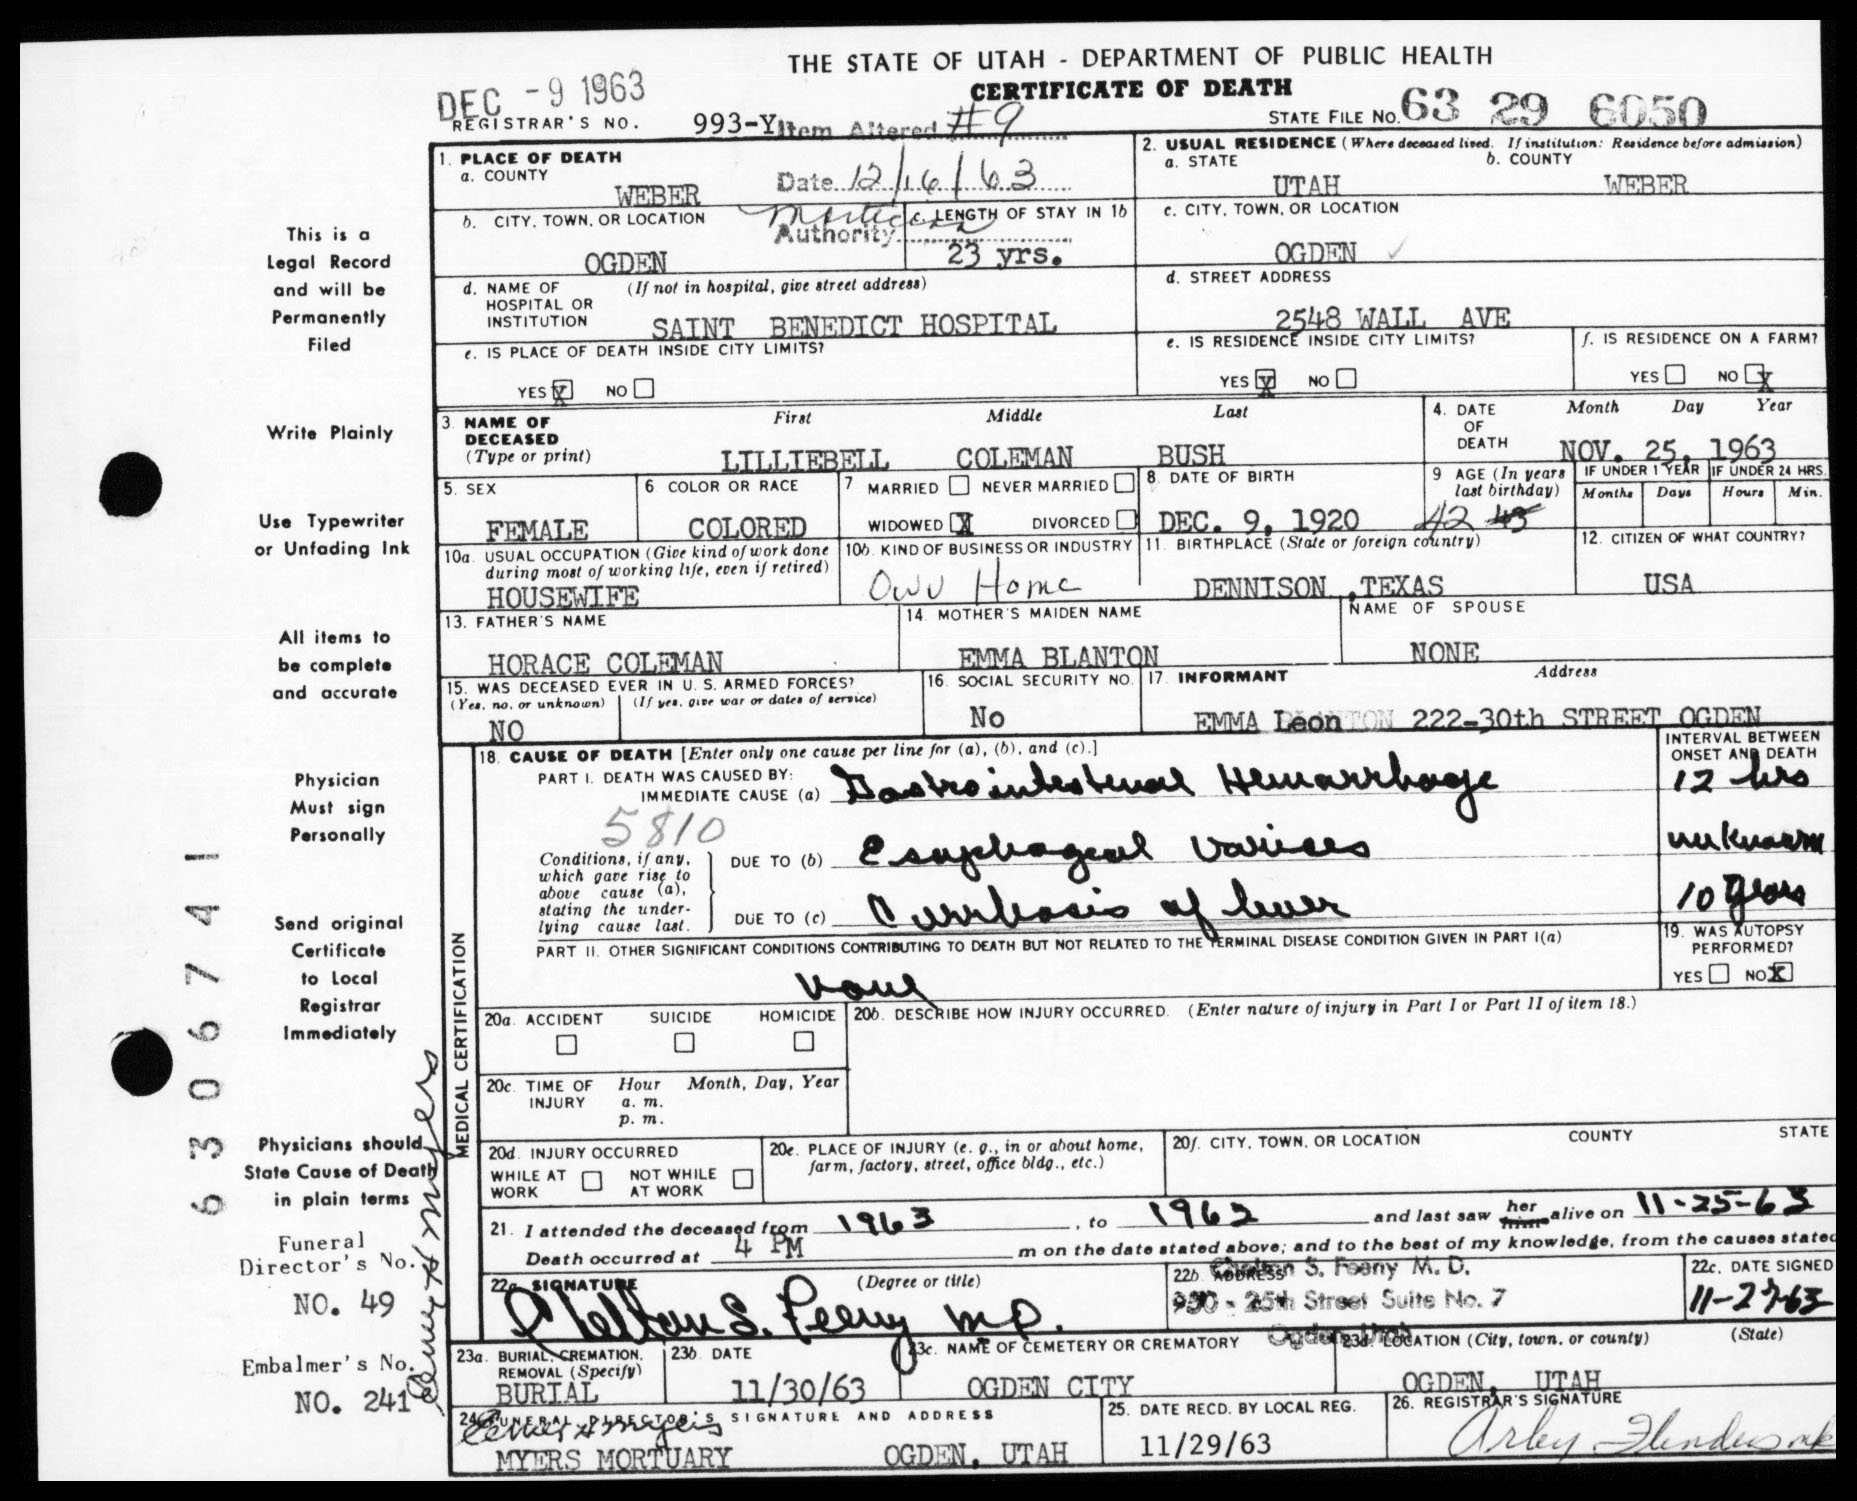 THE STATE OF UTAH - DEPARTMENT OF PUBLIC HEALTH
CERTIFICATE OF DEATH
DEC -9 1963
REGISTRAR'S NO. 993-Y Item Altered #9
STATE FILE NO. 63 29 6050
Date 12/16/63
Authority
1. PLACE OF DEATH
a. COUNTY
WEBER
b. CITY, TOWN, OR LOCATION
OGDEN
c. LENGTH OF STAY IN 1b
23 yrs.
d. NAME OF HOSPITAL OR INSTITUTION (If not in hospital, give street address)
SAINT BENEDICT HOSPITAL
e. IS PLACE OF DEATH INSIDE CITY LIMITS?
YES X NO
2. USUAL RESIDENCE (Where deceased lived. If institution: Residence before admission)
a. STATE
UTAH
b. COUNTY
WEBER
c. CITY, TOWN, OR LOCATION
OGDEN
d. STREET ADDRESS
2548 WALL AVE
e. IS RESIDENCE INSIDE CITY LIMITS?
YES X NO
f. IS RESIDENCE ON A FARM?
YES NO X
3. NAME OF DECEASED (Type or print)
First Middle Last
LILLIEBELL COLEMAN BUSH
4. DATE OF DEATH
Month Day Year
NOV. 25, 1963
5. SEX
FEMALE
6 COLOR OR RACE
COLORED
7 MARRIED NEVER MARRIED
WIDOWED X DIVORCED
8. DATE OF BIRTH
DEC. 9, 1920
9 AGE (In years last birthday)
42 43
IF UNDER 1 YEAR
Months Days
IF UNDER 24 HRS.
Hours Min.
10a. USUAL OCCUPATION (Give kind of work done during most of working life, even if retired)
HOUSEWIFE
10b. KIND OF BUSINESS OR INDUSTRY
Own Home
11. BIRTHPLACE (State or foreign country)
DENNISON ,TEXAS
12. CITIZEN OF WHAT COUNTRY?
USA
13. FATHER'S NAME
HORACE COLEMAN
14. MOTHER'S MAIDEN NAME
EMMA BLANTON
NAME OF SPOUSE
NONE
15. WAS DECEASED EVER IN U. S. ARMED FORCES?
(Yes, no, or unknown) (If yes, give war or dates of service)
NO
16. SOCIAL SECURITY NO.
No
17. INFORMANT Address
EMMA Leon 222-30th STREET OGDEN
MEDICAL CERTIFICATION
18. CAUSE OF DEATH [Enter only one cause per line for (a), (b), and (c).]
INTERVAL BETWEEN ONSET AND DEATH
PART I. DEATH WAS CAUSED BY:
IMMEDIATE CAUSE (a) Gastrointestinal Hemarrhage 12 hrs
5810
Conditions, if any, which gave rise to above cause (a), stating the underlying cause last.
DUE TO (b) Esophageal Varices unknown
DUE TO (c) Cirrhosis of liver 10 years
PART II. OTHER SIGNIFICANT CONDITIONS CONTRIBUTING TO DEATH BUT NOT RELATED TO THE TERMINAL DISEASE CONDITION GIVEN IN PART I(a)
None
19. WAS AUTOPSY PERFORMED?
YES NO X
20a. ACCIDENT SUICIDE HOMICIDE
20b. DESCRIBE HOW INJURY OCCURRED. (Enter nature of injury in Part I or Part II of item 18.)
20c. TIME OF INJURY
Hour Month, Day, Year
a. m.
p. m.
20d. INJURY OCCURRED
WHILE AT WORK NOT WHILE AT WORK
20e. PLACE OF INJURY (e. g., in or about home, farm, factory, street, office bldg., etc.)
20f. CITY, TOWN, OR LOCATION COUNTY STATE
21. I attended the deceased from 1963, to 1963 and last saw her him alive on 11-25-63
Death occurred at 4 PM m on the date stated above; and to the best of my knowledge, from the causes stated
22a. SIGNATURE (Degree or title)
Chelton S. Feeny M.D.
22b ADDRESS
Chelton S. Feeny M. D.
950 - 25th Street Suite No. 7
Ogden, Utah
22c. DATE SIGNED
11-27-63
23a. BURIAL, CREMATION, REMOVAL (Specify)
BURIAL
23b. DATE
11/30/63
23c. NAME OF CEMETERY OR CREMATORY
OGDEN CITY
23d. LOCATION (City, town, or county) (State)
OGDEN, UTAH
24. FUNERAL DIRECTOR'S SIGNATURE AND ADDRESS
MYERS MORTUARY OGDEN, UTAH
25. DATE RECD. BY LOCAL REG.
11/29/63
26. REGISTRAR'S SIGNATURE
This is a
Legal Record
and will be
Permanently
Filed
Write Plainly
Use Typewriter
or Unfading Ink
All items to
be complete
and accurate
Physician
Must sign
Personally
Send original
Certificate
to Local
Registrar
Immediately
Physicians should
State Cause of Death
in plain terms
Funeral
Director's No.
NO. 49
Embalmer's No.
NO. 241
6306741